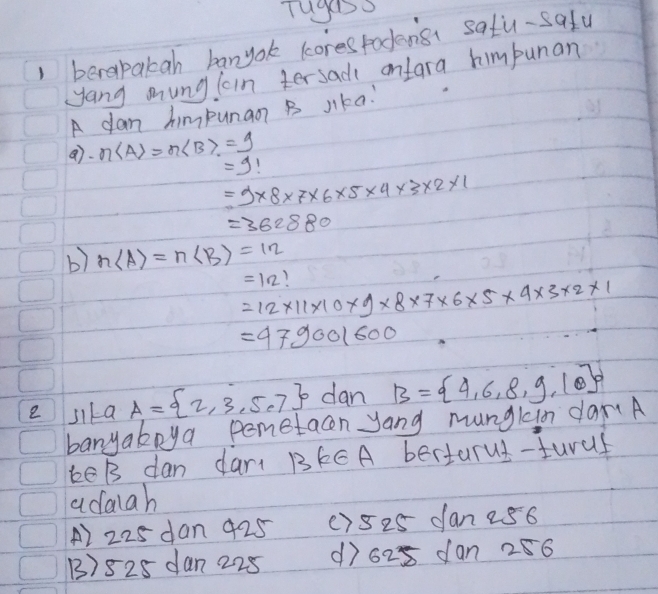 Tugas
1 berapakah banyak korespodensi satu-satu
yang mungkin terjadi antara himpunan
A dan himpunan B jika!
a). n(A) = n(B) = 9
= 9!
= 9×8×7×6×5×4×3×2×1
= 362880
b) n(A) = n(B) = 12
= 12!
= 12×11×10×9×8×7×6×5×4×3×2×1
= 479001600
2 jika A = {2,3,5,7} dan B = {4,6,8,9,10}
banyaknya pemetaan yang mungkin dari A
ke B dan dari B ke A berturut-turut
adalah
A) 225 dan 425 c) 525 dan 256
B) 525 dan 225 d) 625 dan 256